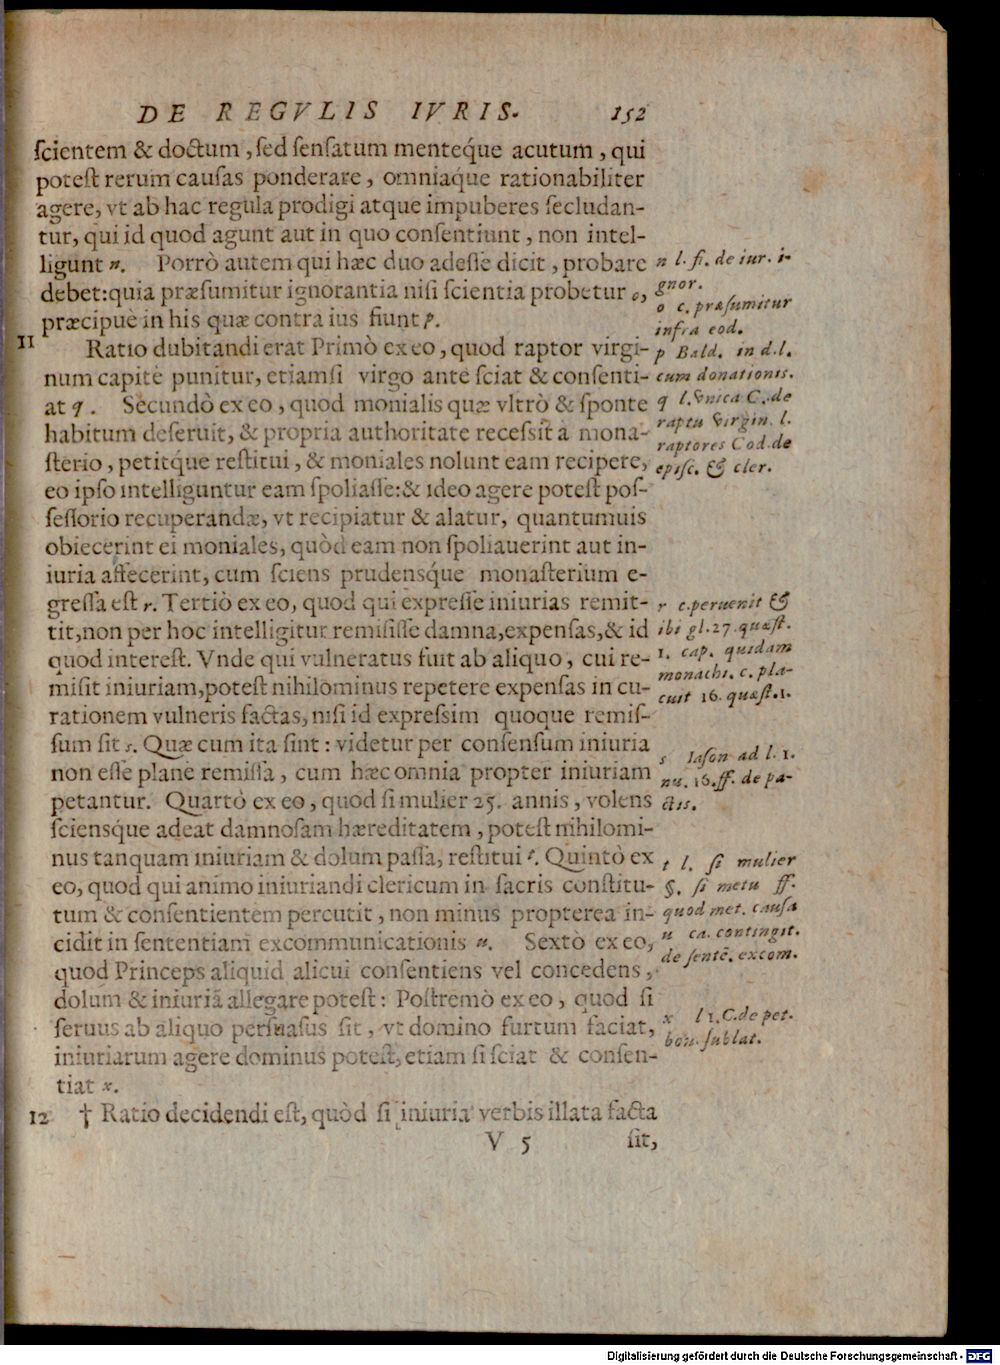 DE REGVLIS IVRIS. 152
ſcientem & doctum, ſed ſenſatum menteq́ue acutum, qui
poteſt rerum cauſas ponderare, omniaq́ue rationabiliter
agere, vt ab hac regula prodigi atque impuberes ſecludan-
tur, qui id quod agunt aut in quo conſentiunt, non intel-
ligunt n. Porrò autem qui hæc duo adeſſe dicit, probare
debet: quia præſumitur ignorantia niſi ſcientia probetur o,
præcipuè in his quæ contra ius fiunt p.
11 Ratio dubitandi erat Primò ex eo, quod raptor virgi-
num capitè punitur, etiamſi virgo antè ſciat & conſenti-
at q. Secundò ex eo, quod monialis quæ vltrò & ſponte
habitum deſeruit, & propria authoritate receſsit à mona-
ſterio, petitq́ue reſtitui, & moniales nolunt eam recipere,
eo ipſo intelliguntur eam ſpoliaſſe: & ideo agere poteſt poſ-
ſeſſorio recuperandæ, vt recipiatur & alatur, quantumuis
obiecerint ei moniales, quòd eam non ſpoliauerint aut in-
iuria affecerint, cum ſciens prudensq́ue monaſterium e-
greſſa eſt r. Tertiò ex eo, quod qui expreſſè iniurias remit-
tit, non per hoc intelligitur remiſiſſe damna, expenſas, & id
quod intereſt. Vnde qui vulneratus fuit ab aliquo, cui re-
miſit iniuriam, poteſt nihilominus repetere expenſas in cu-
rationem vulneris factas, niſi id expreſsim quoque remiſ-
ſum ſit s. Quæ cum ita ſint: videtur per conſenſum iniuria
non eſſe planè remiſſa, cum hæc omnia propter iniuriam
petantur. Quartò ex eo, quod ſi mulier 25. annis, volens
ſciensq́ue adeat damnoſam hæreditatem, poteſt nihilomi-
nus tanquam iniuriam & dolum paſſa, reſtitui t. Quintò ex
eo, quod qui animo iniuriandi clericum in ſacris conſtitu-
tum & conſentientem percutit, non minus propterea in-
cidit in ſententiam excommunicationis u. Sextò ex eo,
quod Princeps aliquid alicui conſentiens vel concedens,
dolum & iniuriā allegare poteſt: Poſtremò ex eo, quod ſi
ſeruus ab aliquo perſuaſus ſit, vt domino furtum faciat,
iniuriarum agere dominus poteſt, etiam ſi ſciat & conſen-
tiat x.
12 † Ratio decidendi eſt, quòd ſi iniuria verbis illata facta
V 5 ſit,
n l. fi. de iur. i-
gnor.
o c. præſumitur
infra eod.
p Bald. in d.l.
cum donationis.
q l. vnica C. de
raptu virgin. l.
raptores Cod. de
epiſc. & cler.
r c. peruenit &
ibi gl. 27. quæſt.
1. cap. quidam
monachi. c. pla-
cuit 16. quæſt. 1.
s Iaſon ad l. 1.
nu. 16. ff. de pa-
ctis.
t l. ſi mulier
§. ſi metu ff.
quod met. cauſa
u ca. contingit.
de ſentē. excom.
x l 1. C. de pet.
bon. ſublat.
Digitalisierung gefördert durch die Deutsche Forschungsgemeinschaft - DFG